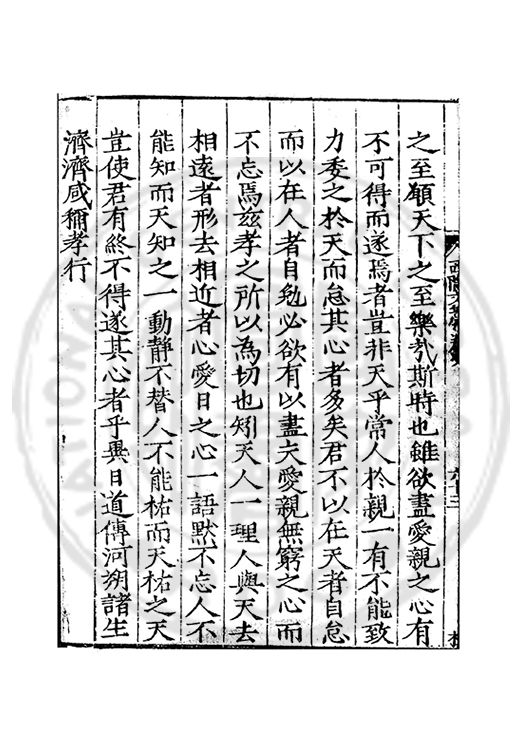 之至願天下之至樂哉斯時也雖欲盡愛親之心有
不可得而遂焉者豈非天乎常人於親一有不能致
力委之於天而怠其心者多矣君不以在天者自怠
而以在人者自勉必欲有以盡夫愛親無窮之心而
不忘焉茲孝之所以為切也矧天人一理人與天去
相遠者形去相近者心愛日之心一語默不忘人不
能知而天知之一動靜不替人不能祐而天祐之天
豈使君有終不得遂其心者乎異日道傳河朔諸生
濟濟咸稱孝行